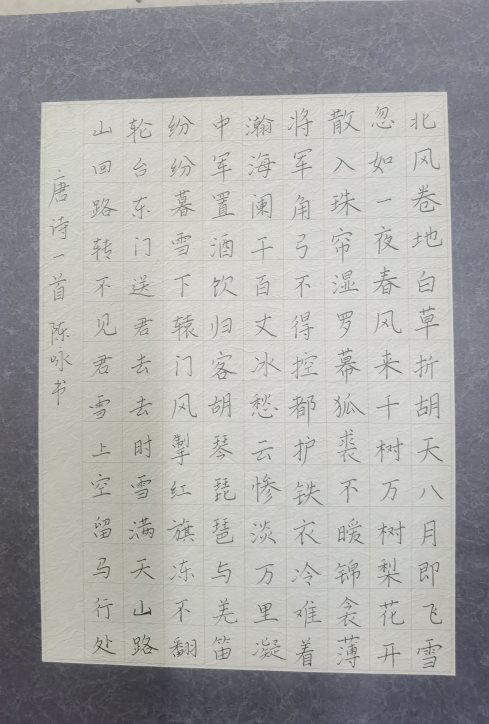 北风卷地白草折胡天八月即飞雪
忽如一夜春风来千树万树梨花开
散入珠帘湿罗幕狐裘不暖锦衾薄
将军角弓不得控都护铁衣冷难着
瀚海阑干百丈冰愁云惨淡万里凝
中军置酒饮归客胡琴琵琶与羌笛
纷纷暮雪下辕门风掣红旗冻不翻
轮台东门送君去去时雪满天山路
山回路转不见君雪上空留马行处
唐诗一首 陈咏书